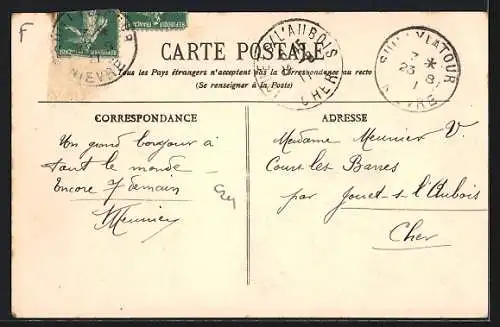 F
NIEVRE
CARTE POSTALE
Tous les Pays étrangers n'acceptent pas la Correspondance au recto
(Se renseigner à la Poste)
L'AUBOIS
CHER
SULLY LA TOUR
7 *
23 8
NIEVRE
CORRESPONDANCE
Un grand bonjour à
tout le monde
Encore 7 demain
Meunier
ADRESSE
Madame Meunier V.
Cours les Barres
par Jouet-s-l'Aubois
Cher